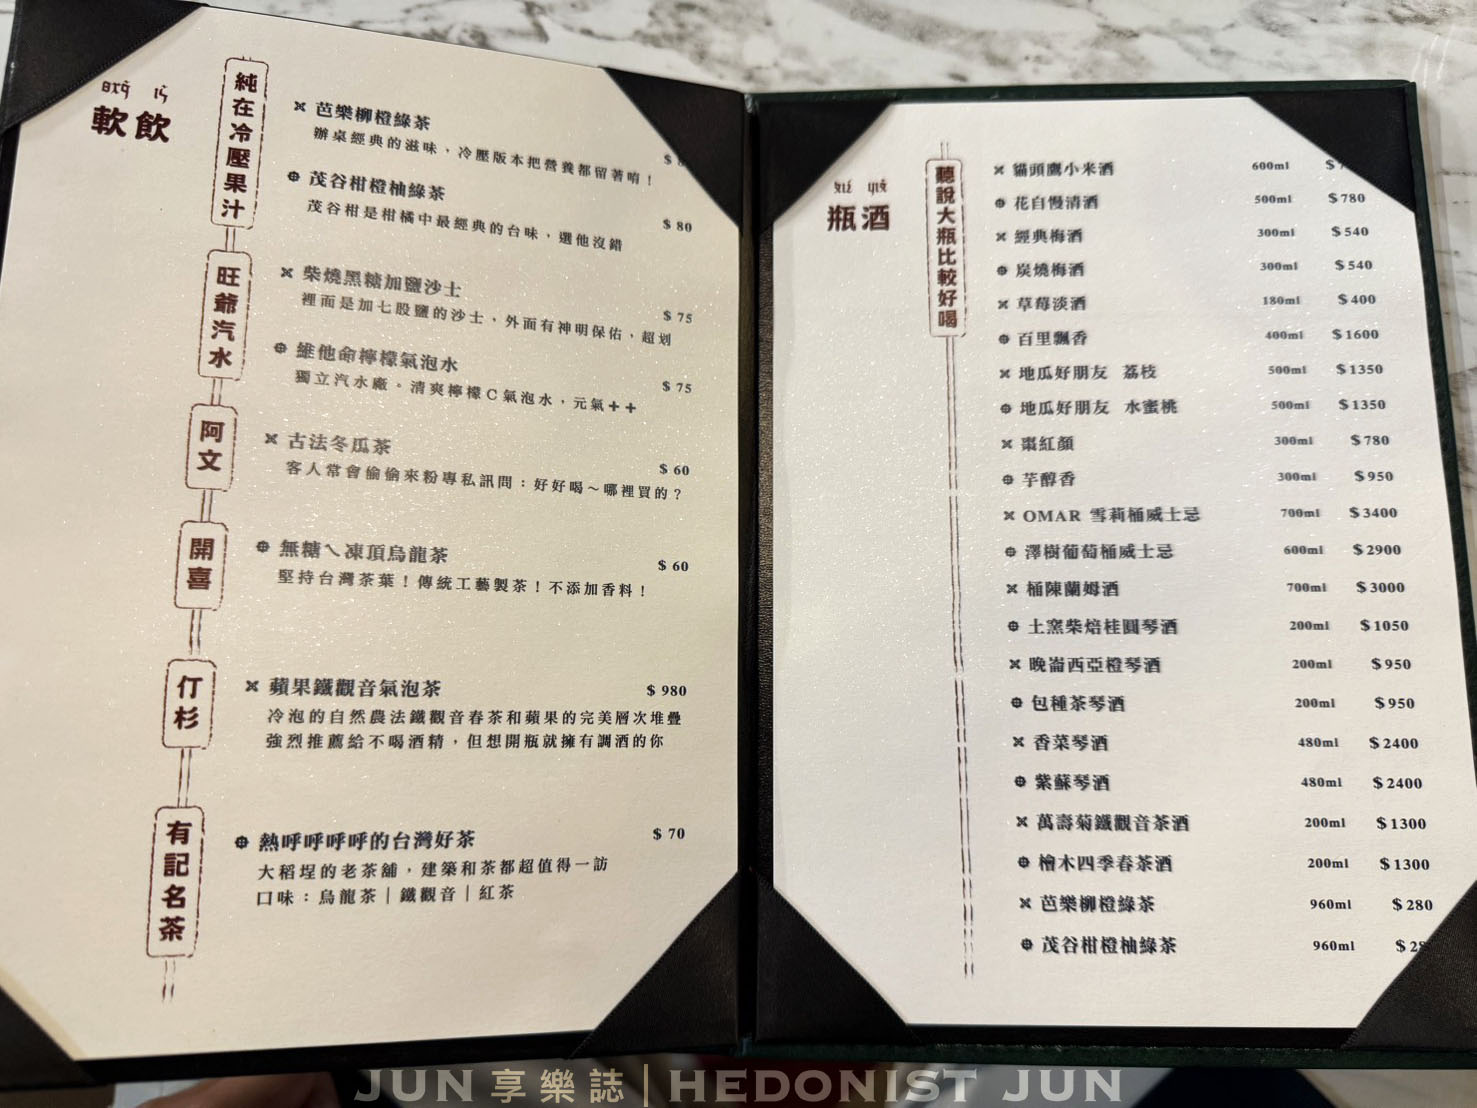 軟飲
純在冷壓果汁
芭樂柳橙綠茶
辦桌經典的滋味，冷壓版本把營養都留著唷！
茂谷柑橙柚綠茶 $ 80
茂谷柑是柑橘中最經典的台味，選他沒錯
旺爺汽水
柴燒黑糖加鹽沙士 $ 75
裡面是加七股鹽的沙士，外面有神明保佑，超划
維他命檸檬氣泡水 $ 75
獨立汽水廠。清爽檸檬C氣泡水，元氣++
阿文
古法冬瓜茶 $ 60
客人常會偷偷來粉專私訊問：好好喝～哪裡買的？
開喜
無糖ㄟ凍頂烏龍茶 $ 60
堅持台灣茶葉！傳統工藝製茶！不添加香料！
仃杉
蘋果鐵觀音氣泡茶 $ 980
冷泡的自然農法鐵觀音春茶和蘋果的完美層次堆疊
強烈推薦給不喝酒精，但想開瓶就擁有調酒的你
有記名茶
熱呼呼呼呼的台灣好茶 $ 70
大稻埕的老茶舖，建築和茶都超值得一訪
口味：烏龍茶｜鐵觀音｜紅茶
瓶酒
聽說大瓶比較好喝
貓頭鷹小米酒 600ml
花自慢清酒 500ml $780
經典梅酒 300ml $540
炭燒梅酒 300ml $540
草莓淡酒 180ml $400
百里飄香 400ml $1600
地瓜好朋友 荔枝 500ml $1350
地瓜好朋友 水蜜桃 500ml $1350
棗紅顏 300ml $780
芋醇香 300ml $950
OMAR 雪莉桶威士忌 700ml $3400
澤樹葡萄桶威士忌 600ml $2900
桶陳蘭姆酒 700ml $3000
土窯柴焙桂圓琴酒 200ml $1050
晚崙西亞橙琴酒 200ml $950
包種茶琴酒 200ml $950
香菜琴酒 480ml $2400
紫蘇琴酒 480ml $2400
萬壽菊鐵觀音茶酒 200ml $1300
檜木四季春茶酒 200ml $1300
芭樂柳橙綠茶 960ml $280
茂谷柑橙柚綠茶 960ml
JUN享樂誌｜HEDONIST JUN